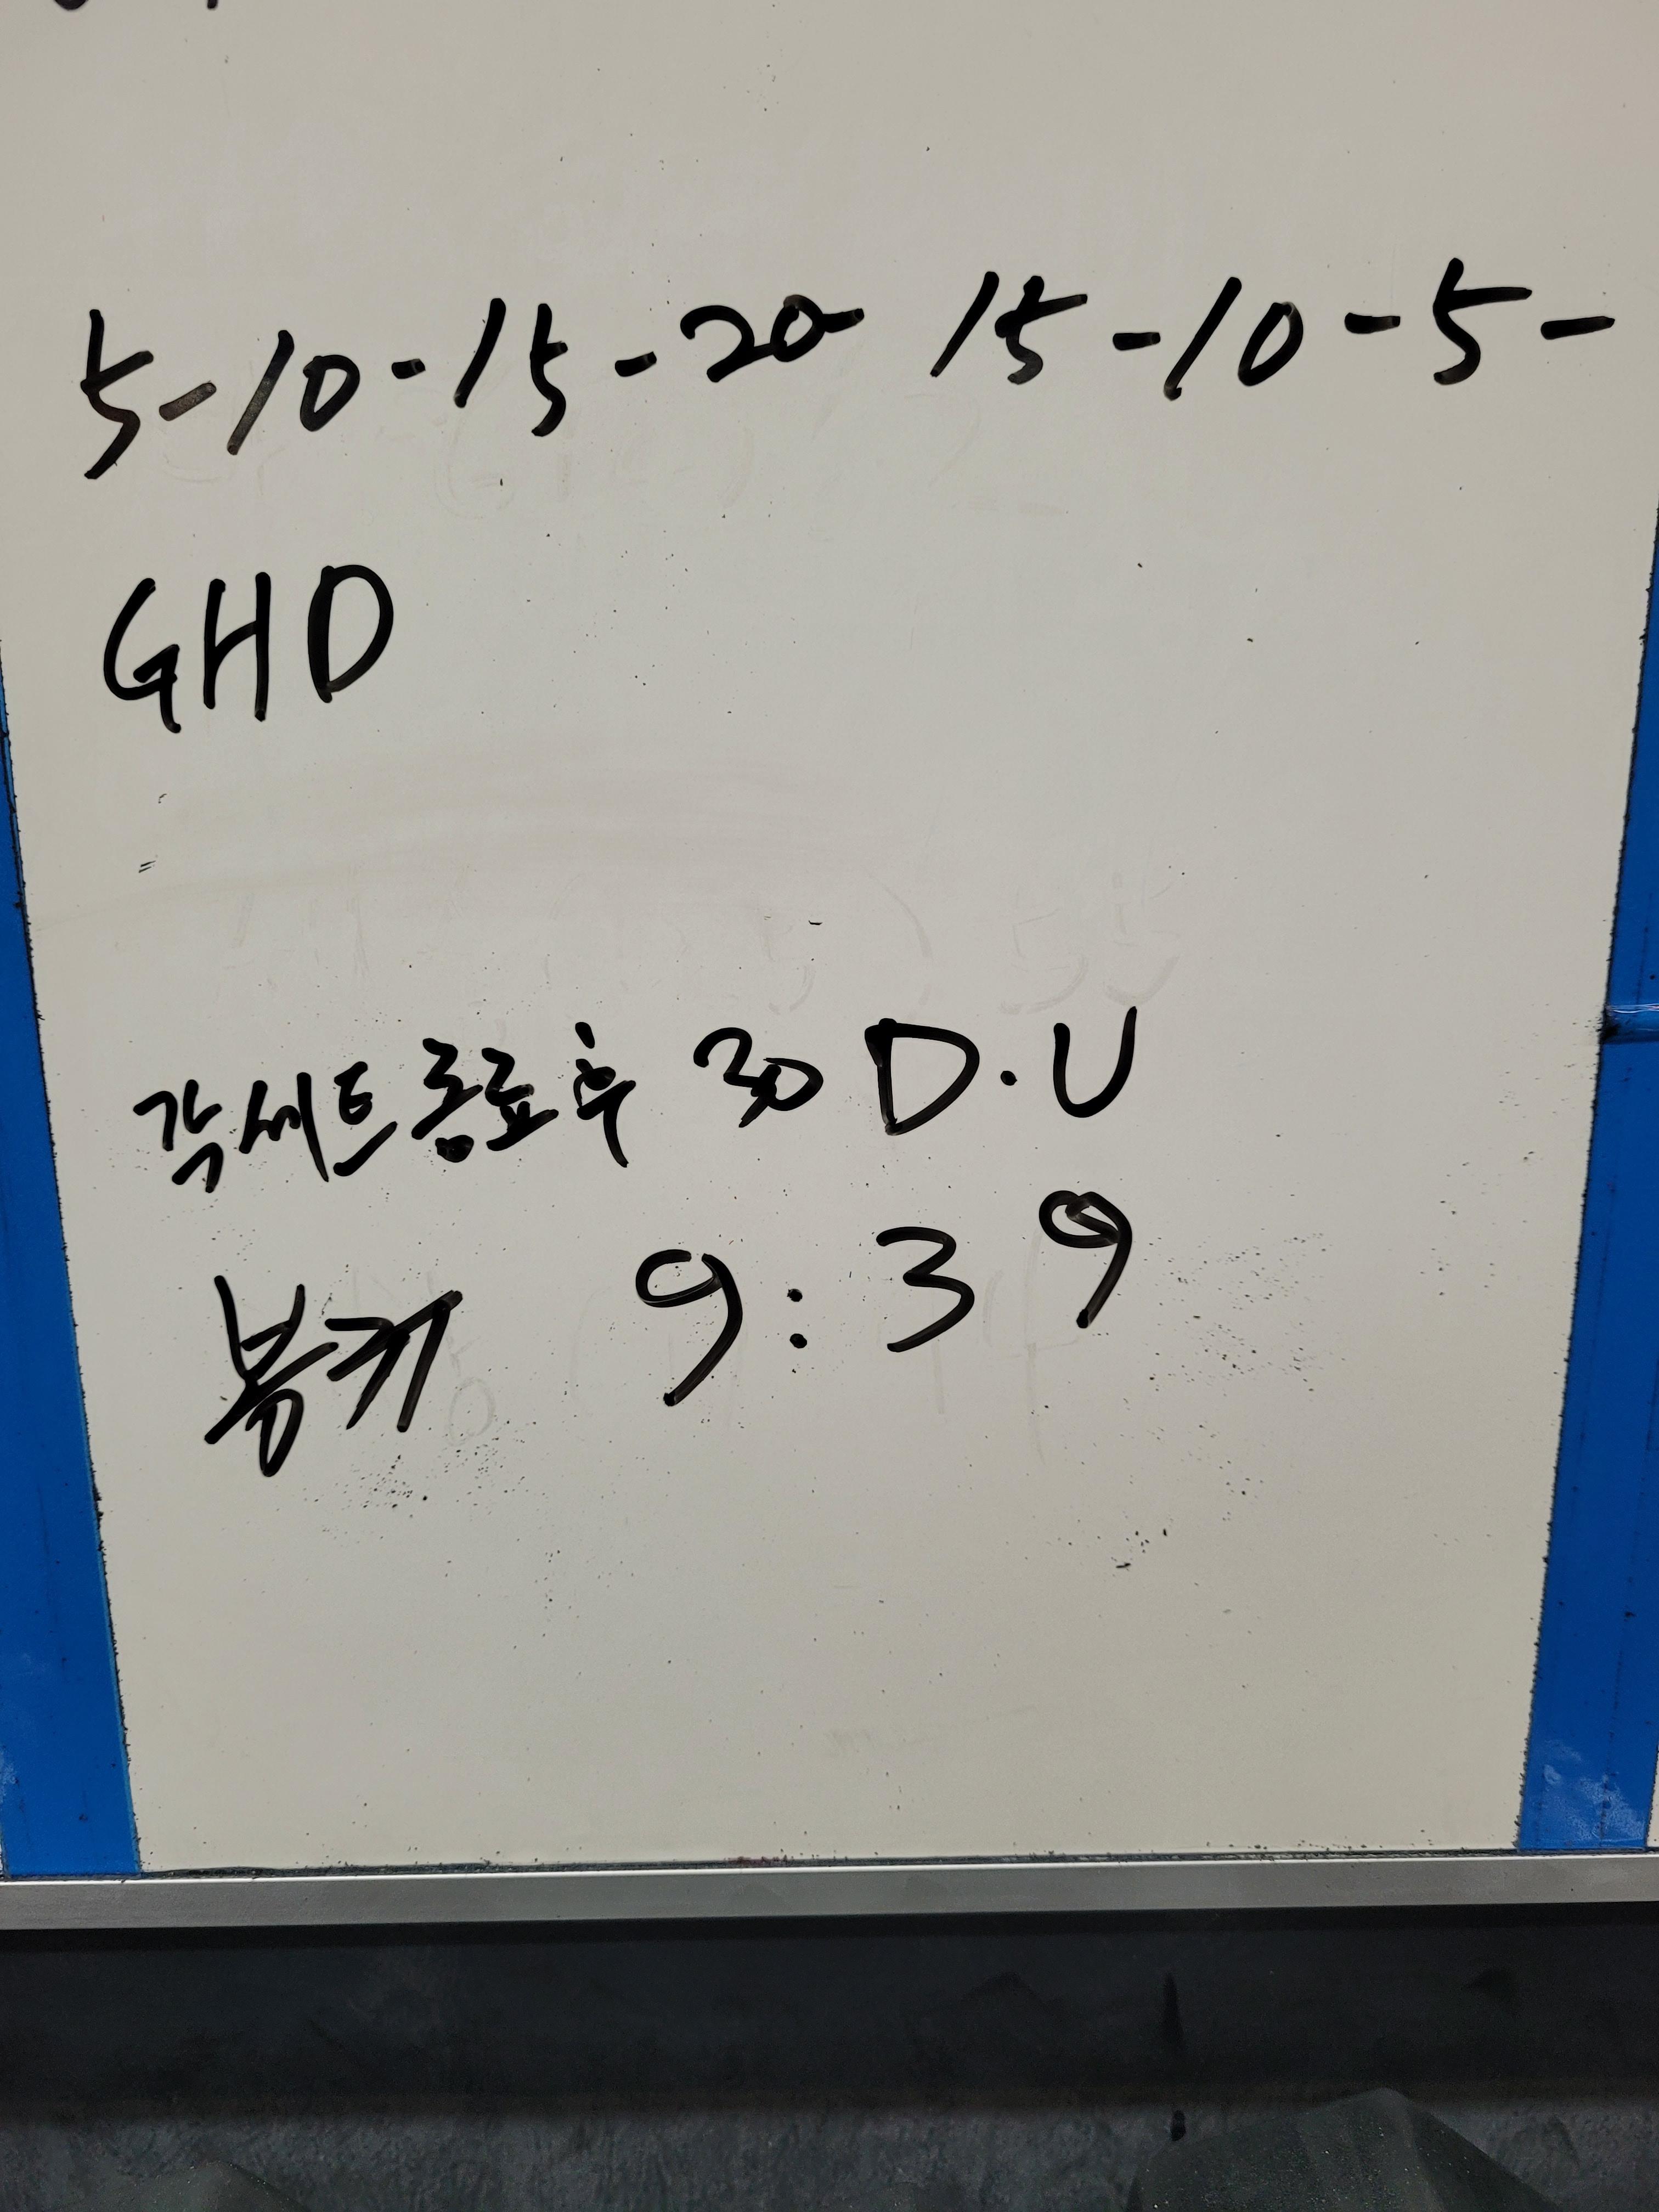 5-10-15-20- 15-10-5-
GHD
각세트종료후 30 D.U
봉커 9:39